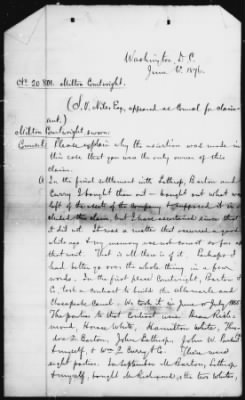 Washington, D.C.
June 6th 1876.
No. 20 801. Milton Courtwright.
(S. V. Niles Esq. appeared as Counsel for claim-
ant.)
Milton Courtwright sworn:
Counsel: Please explain why the assertion was made in
this case that you was the only owner of this
claim.
A. In the final settlement with Lathrop, Barton and
Curry I bought them out - bought out what was
left of the assets of the company I supposed it in-
cluded the claim, but I have ascertained since that
it did not. It was a matter that occurred a good
while ago & my memory was not correct so far as
that went. That is all there is of it. Perhaps I
had better go over the whole thing in a few
words. In the first place Courtwright, Barton &
Co. took a contract to build the Albemarle and
Chesapeake Canal. We took it in June or July 1855.
The parties to that contract were Dean Rich-
mond, Horace White, Hamilton White, Theo-
dore Barton, John Lathrop, John W.
& myself, & Wm Curry & Co. These were
eight parties. In September Mc Barton, Lathrop
& myself, bought Mr Richmond, the two Whites,